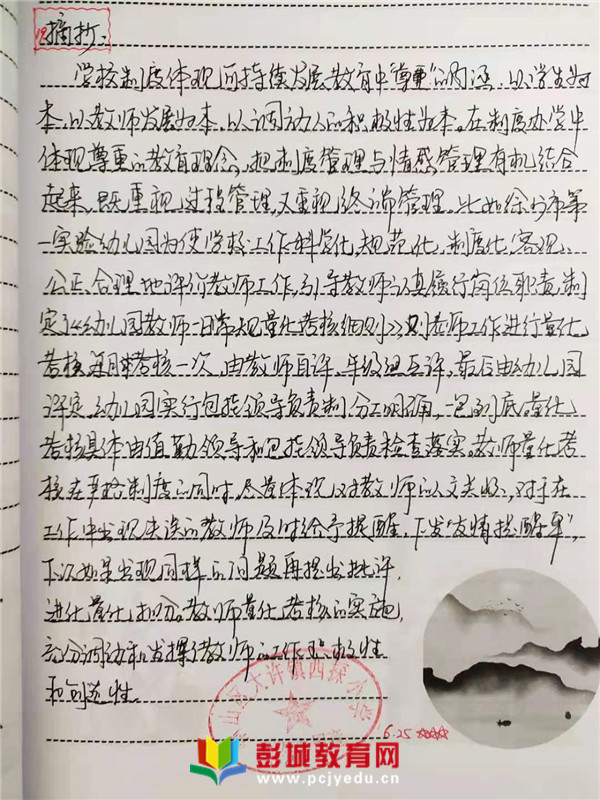 摘抄:
学校制度体现可持续发展教育中“尊重”的内涵,以学生为
本,以教师发展为本,以调动人的积极性为本。在制度办学中
体现尊重的教育理念,把制度管理与情感管理有机结合
起来,既重视过程管理,又重视终端管理。比如徐州市第
一实验幼儿园为使学校工作科学化、规范化、制度化,客观、
公正、合理地评价教师工作,引导教师认真履行岗位职责,制
定了《幼儿园教师一日常规量化考核细则》,对老师工作进行量化
考核,每月考核一次,由教师自评、年级组互评,最后由幼儿园
评定。幼儿园实行包挂领导负责制,分工明确,一包到底,量化
考核具体由值勤领导和包挂领导负责检查落实。教师量化考
核在严格制度的同时,尽量体现对教师的人文关怀,对于在
工作中出现失误的教师及时给予提醒,下发“友情提醒单”,
下次如果发现同样的问题再提出批评,
进行量化扣分。教师量化考核的实施,
充分调动和发挥了教师的工作积极性
和创造性。
大许镇西探小学
6.25
彭城教育网
www.pcjyedu.cn